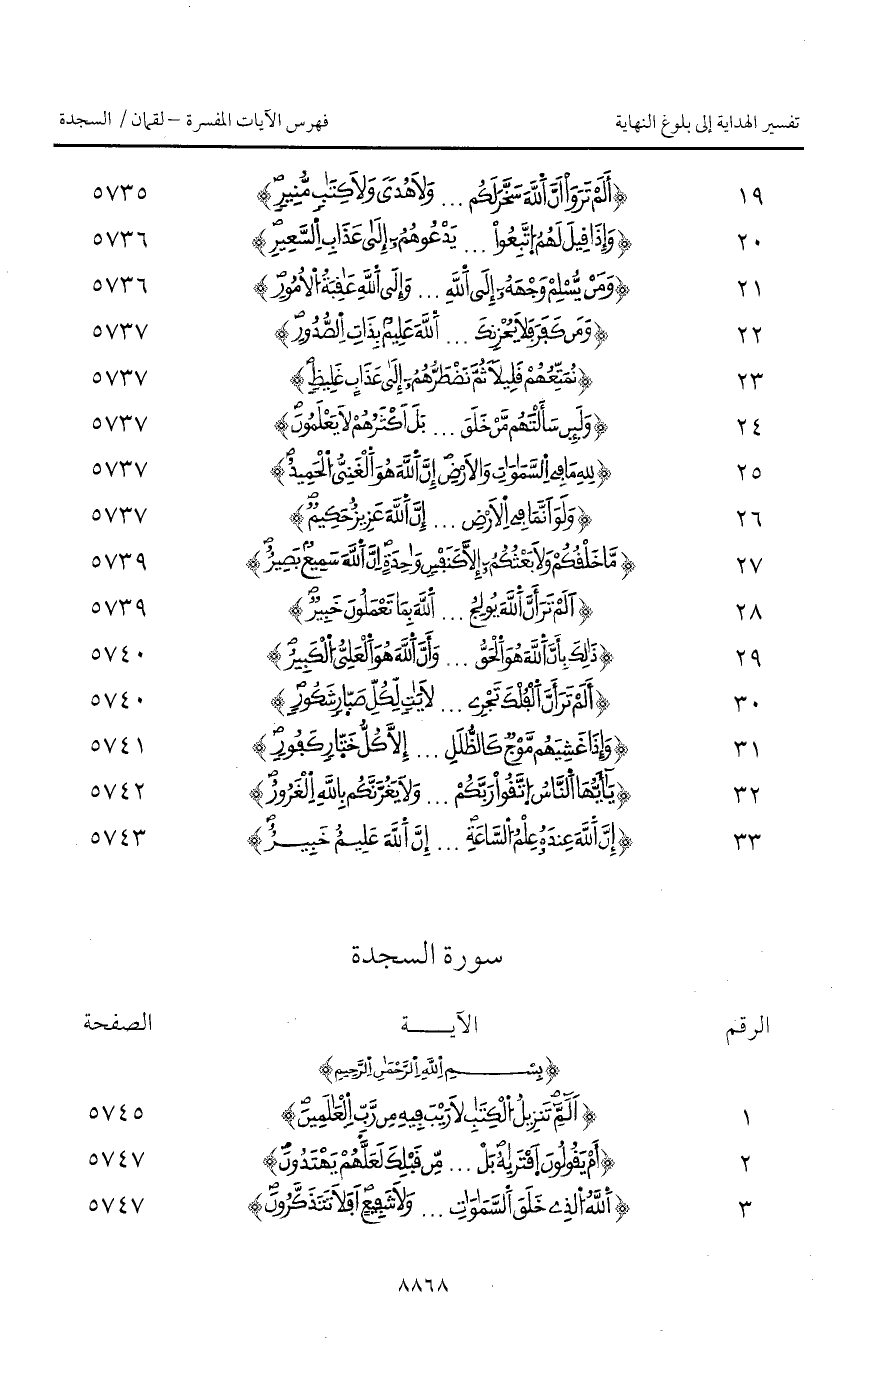 تفسير الهداية إلى بلوغ النهاية فهرس الآيات المفسرة – لقمان / السجدة
١٩ ﴿أَلَمْ تَرَوْاْ أَنَّ ٱللَّهَ سَخَّرَ لَكُم ... وَلاَ هُدىً وَلاَ كِتَٰبٍ مُّنِيرٍ﴾ ٥٧٣٥
٢٠ ﴿وَإِذَا قِيلَ لَهُمُ اِ۪تَّبِعُواْ ... يَدْعُوهُمُۥٓ إِلَىٰ عَذَابِ اِ۬لسَّعِيرِ﴾ ٥٧٣٦
٢١ ﴿وَمَنْ يُّسْلِمْ وَجْهَهُۥٓ إِلَى ٱللَّهِ ... وَإِلَى ٱللَّهِ عَٰقِبَةُ اُ۬لاُمُورِ﴾ ٥٧٣٦
٢٢ ﴿وَمَن كَفَرَ فَلاَ يُحْزِنكَ ... ٱللَّهَ عَلِيمٌ بِذَاتِ اِ۬لصُّدُورِ﴾ ٥٧٣٧
٢٣ ﴿نُمَتِّعُهُمْ قَلِيلاً ثُمَّ نَضْطَرُّهُمُۥٓ إِلَىٰ عَذَابٍ غَلِيظٍ﴾ ٥٧٣٧
٢٤ ﴿وَلَئِن سَأَلْتَهُم مَّنْ خَلَقَ ... بَلَ اَكْثَرُهُمْ لاَ يَعْلَمُونَ﴾ ٥٧٣٧
٢٥ ﴿لِلهِ مَا فِے اِ۬لسَّمَٰوَٰتِ وَالاَرْضِ إِنَّ ٱللَّهَ هُوَ ٱلْغَنِيُّ اُ۬لْحَمِيدُ﴾ ٥٧٣٧
٢٦ ﴿وَلَوَ اَنَّمَا فِے اِ۬لاَرْضِ ... إِنَّ ٱللَّهَ عَزِيزٌ حَكِيمٌ﴾ ٥٧٣٧
٢٧ ﴿مَّا خَلْقُكُمْ وَلاَ بَعْثُكُمُۥٓ إِلاَّ كَنَفْسٍ وَٰحِدَةٍ اِنَّ ٱللَّهَ سَمِيعٌ بَصِيرٌ﴾ ٥٧٣٩
٢٨ ﴿اَلَمْ تَرَ أَنَّ ٱللَّهَ يُولِجُ ... ٱللَّهَ بِمَا تَعْمَلُونَ خَبِيرٌ﴾ ٥٧٣٩
٢٩ ﴿ذَٰلِكَ بِأَنَّ ٱللَّهَ هُوَ ٱلْحَقُّ ... وَأَنَّ ٱللَّهَ هُوَ ٱلْعَلِيُّ اُ۬لْكَبِيرُ﴾ ٥٧٤٠
٣٠ ﴿أَلَمْ تَرَ أَنَّ ٱلْفُلْكَ تَجْرِے ... لَأٓيَٰتٍ لِّكُلِّ صَبّٰارٍ شَكُورٍ﴾ ٥٧٤٠
٣١ ﴿وَإِذَا غَشِيَهُم مَّوْجٌ كَالظُّلَلِ ... إِلاَّ كُلُّ خَتّٰارٍ كَفُورٍ﴾ ٥٧٤١
٣٢ ﴿يَٰٓأَيُّهَا ٱلنَّاسُ اُ۪تَّقُواْ رَبَّكُمْ ... وَلاَ يَغُرَّنَّكُم بِاللَّهِ اِ۬لْغَرُورُ﴾ ٥٧٤٢
٣٣ ﴿إِنَّ ٱللَّهَ عِندَهُۥ عِلْمُ اُ۬لسَّاعَةِ ... إِنَّ ٱللَّهَ عَلِيمٌ خَبِيرٌ﴾ ٥٧٤٣
سورة السجدة
الرقم الآيـــة الصفحة
﴿بِسْــمِ اِ۬للَّهِ اِ۬لرَّحْمَٰنِ اِ۬لرَّحِيمِ﴾
١ ﴿أَلَٓمِّٓ تَنزِيلُ اُ۬لْكِتَٰبِ لاَ رَيْبَ فِيهِ مِن رَّبِّ اِ۬لْعَٰلَمِينَ﴾ ٥٧٤٥
٢ ﴿أَمْ يَقُولُونَ اَ۪فْتَر۪يٰهُ بَلْ ... مِّن قَبْلِكَ لَعَلَّهُمْ يَهْتَدُونَ﴾ ٥٧٤٧
٣ ﴿ٱللَّهُ اُ۬لذِے خَلَقَ ٱلسَّمَٰوَٰتِ ... وَلاَ شَفِيعٍ اَفَلاَ تَتَذَكَّرُونَ﴾ ٥٧٤٧
٨٨٦٨